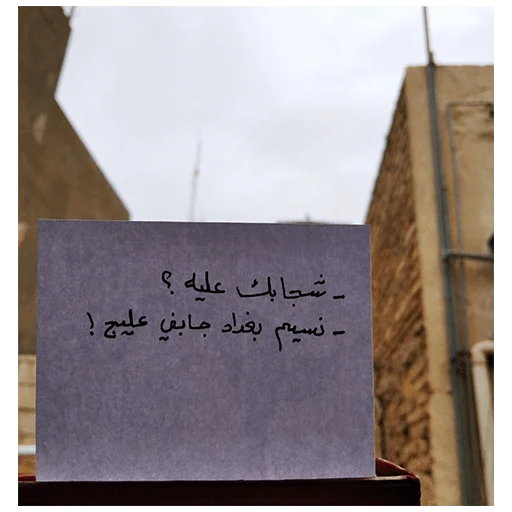 - شجابك عليه ؟
- نسيم بغداد جابني عليج !